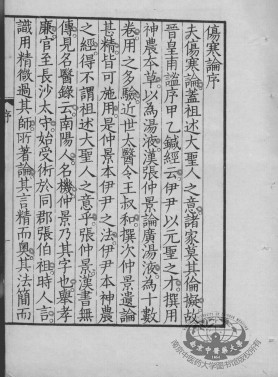 傷寒論序
夫傷寒論蓋祖述大聖人之意諸家莫其倫擬故
晉皇甫謐序甲乙鍼經云伊尹以元聖之才撰用
神農本草以為湯液漢張仲景論廣湯液為十數
卷用之多驗近世太醫令王叔和撰次仲景遺論
甚精皆可施用是仲景本伊尹之法伊尹本神農
之經得不謂祖述大聖人之意乎張仲景漢書無
傳見名醫錄云南陽人名機仲景乃其字也舉孝
廉官至長沙太守始受術於同郡張伯祖時人言
識用精微過其師所著論其言精而奧其法簡而
序
南京中医药大学图书馆版权所有